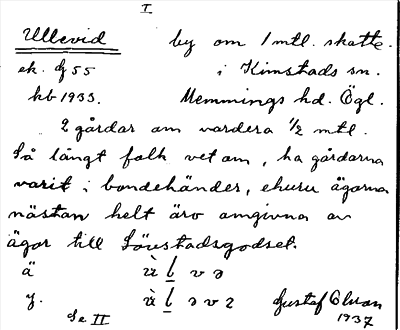 I
Ullevid by om 1 mtl. skatte.
ek. bl 55 i Kimstads sn.
hb 1933. Memmings hd. Ögl.
2 gårdar om vardera 1/2 mtl.
Så långt folk vet om, ha gårdarna
varit i bondehänder, ehuru ägorna
nästan helt äro omgivna av
ägor till Lövstadsgodset.
ä ù l v ə
y. ù l ə v
Se II Gustaf
1937